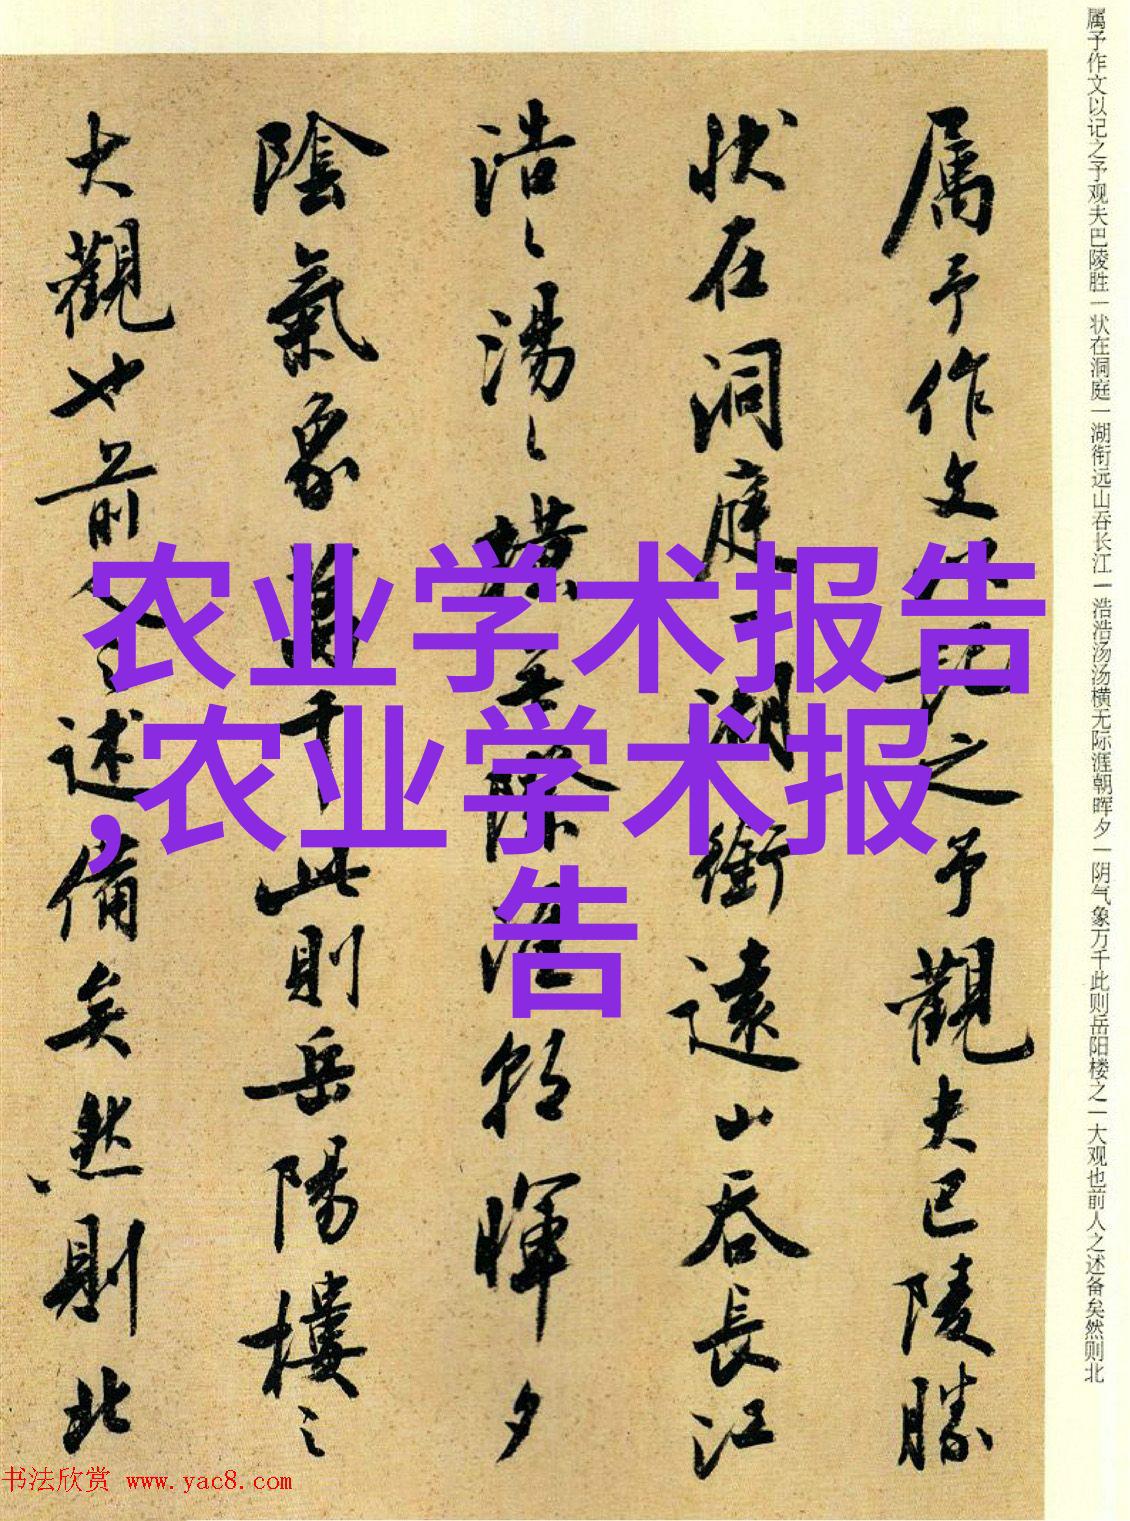 属予作文以记之予观夫巴陵胜一状在洞庭一湖衔远山吞长江一浩浩汤汤横无际涯朝晖夕一阴气象万千此则岳阳楼之一大观也前人之述备矣然则北
属予作文以記之予觀夫巴陵勝
状在洞庭一湖銜遠山吞長江
浩〻湯〻橫無際涯朝暉夕
陰氣象萬千此則岳陽樓之
大觀也前人之述備矣然則北
农业学术报告
,农业学术报
告
书法欣赏 www.yac8.com